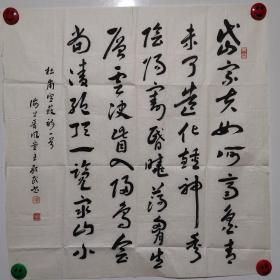 岱宗夫如何齊魯青
未了造化鍾神秀
陰陽割昏曉蕩胸生
層雲決眥入歸鳥會
當凌絕頂一覽衆山小
杜甫望嶽詩一首
海上春風堂主